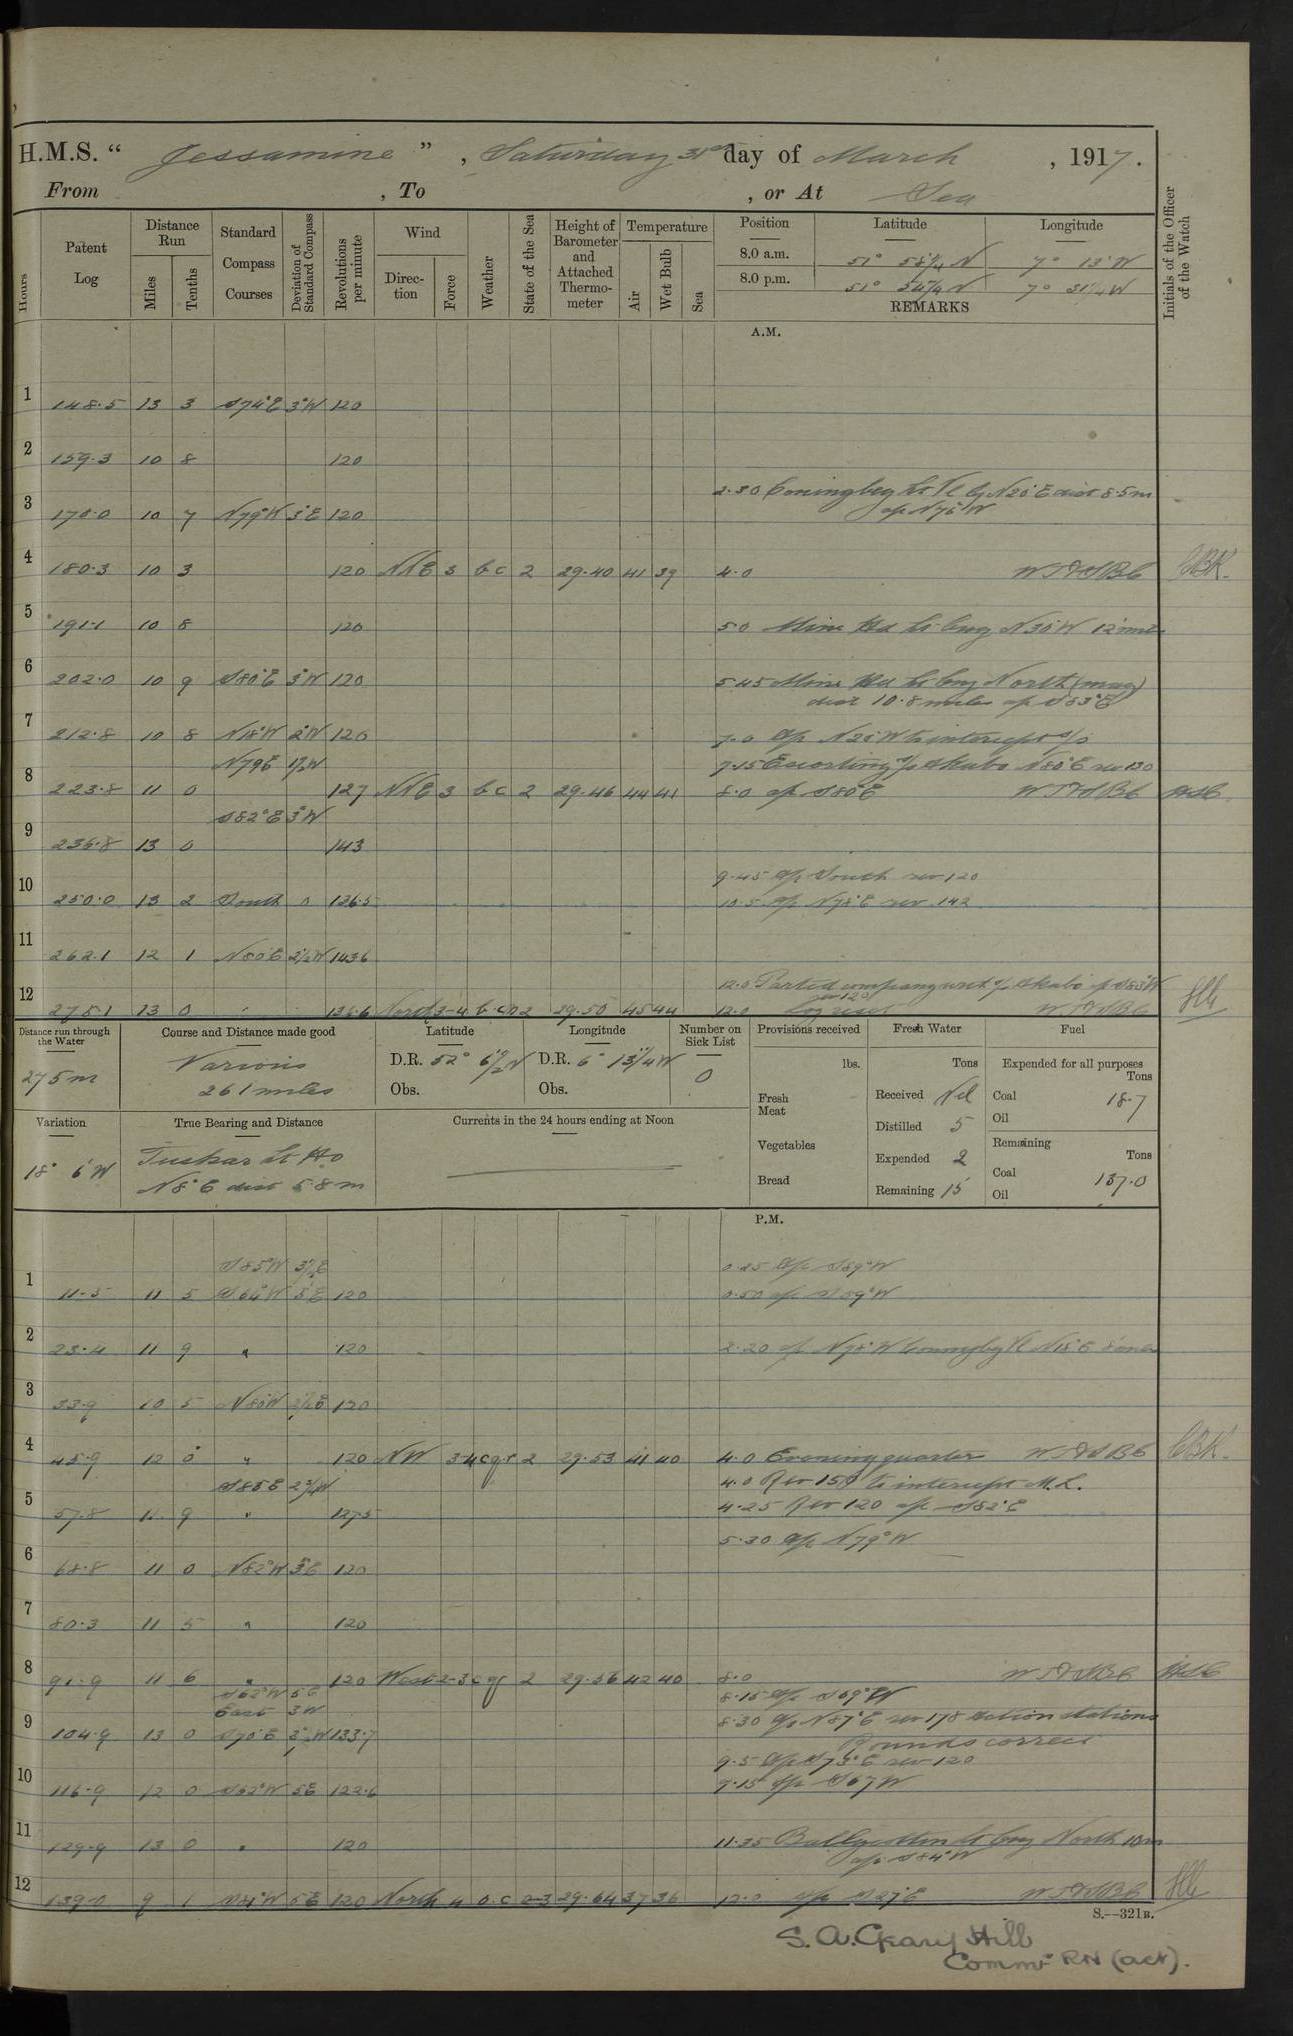 H.M.S. “ Jessamine ” , Saturday 31st day of March , 1917.
From , To , or At Sea
Hours
Patent Log
Distance Run
Miles
Tenths
Standard Compass Courses
Deviation of Standard Compass
Revolutions per minute
Wind
Direction
Force
Weather
State of the Sea
Height of Barometer and Attached Thermometer
Temperature
Air
Wet Bulb
Sea
Position
Latitude
Longitude
8.0 a.m. 7° 13' W
8.0 p.m. 51° 54¼ N 7° 31¼ W
REMARKS
Initials of the Officer of the Watch
A.M.
1 148.5 13 3 S74°E 3°W 120
2 159.3 10 8 120
2.30 Coningbeg Lt Vl N20°E dist 8.5m
a/c N75°W
3 170.0 10 7 N79°W 3°E 120
4 180.3 10 3 120 NNE 3 bc 2 29.40 41 39 4.0
5 191.1 10 8 120 5.0 Mine Hd Lt brg N30°W 12 miles
6 202.0 10 9 S80°E 3°W 120 5.45 Mine Hd Lt brg North (mag)
dist 10.8 miles a/c S83°E
7 212.8 10 8 N18°W 2°W 120 7.0 a/c N20°W to intercept s/s
N79E 1½W 7.15 Escorting s/s Akabo N80°E rev 130
8 223.8 11 0 127 NNE 3 bc 2 29.46 44 41 8.0 a/c S80°E
S82°E 3°W
9 236.8 13 0 143
9.45 a/c South rev 120
10 250.0 13 2 South 0 136.5 10.5 a/c N78°E rev 142
11 262.1 12 1 N80°E 2½W 143.6
12.0 Parted company with s/s Akabo
rev 120
12 275.1 13 0 " 136.6 North 3-4 2 29.50 45 44 12.0 Log reset
Distance run through the Water
275m
Course and Distance made good
Various
261 miles
Latitude
D.R. 52° 6½ N
Obs.
Longitude
D.R. 6° 13¼ W
Obs.
Number on Sick List
0
Provisions received
lbs.
Fresh Meat
Vegetables
Bread
Fresh Water
Tons
Received Nil
Distilled 5
Expended 2
Remaining 15
Fuel
Expended for all purposes
Tons
Coal 18.7
Oil
Remaining
Tons
Coal 137.0
Oil
Variation
18° 6' W
True Bearing and Distance
Tuskar Lt Ho
N8°E dist 5.8m
Currents in the 24 hours ending at Noon
P.M.
S85°W 3½E 0.25 a/c S89°W
1 11.5 11 5 S64°W 5°E 120 0.50 a/c S69°W
2 23.4 11 9 " 120 2.20 a/c N78°W Coningbeg Vl N15°E
3 33.9 10 5 N80W 2½E 120
4 45.9 12 0 " 120 NW 3-4 2 29.53 41 40 4.0 Evening quarters
S85E 2¾W 4.0 Rev 150 to intercept M.L.
5 57.8 11 9 " 127.5 4.25 Rev 120 a/c S82°E
5.30 a/c N79°W
6 68.8 11 0 N82°W 3°E 120
7 80.3 11 5 " 120
8 91.9 11 6 " 120 West 2-3 2 29.56 42 40 8.0
S62°W 5E 8.15 a/c S69°W
East 3W 8.30 a/c N87°E rev 178 Action stations
Rounds correct
9 104.9 13 0 S70°E 133.7 9.5 a/c S73°E rev 120
10 116.9 12 0 S62°W 5E 122.6 9.15 a/c S67W
11 129.9 13 0 " 120 11.35 Ballycotton Lt brg North 10m
a/c S84°W
12 139.0 9 1 5E 120 North 4 2-3 29.64 37 36 12.0 a/c S27°E
S.--321B.
S. A. Geary Hill
Commr RN (act).